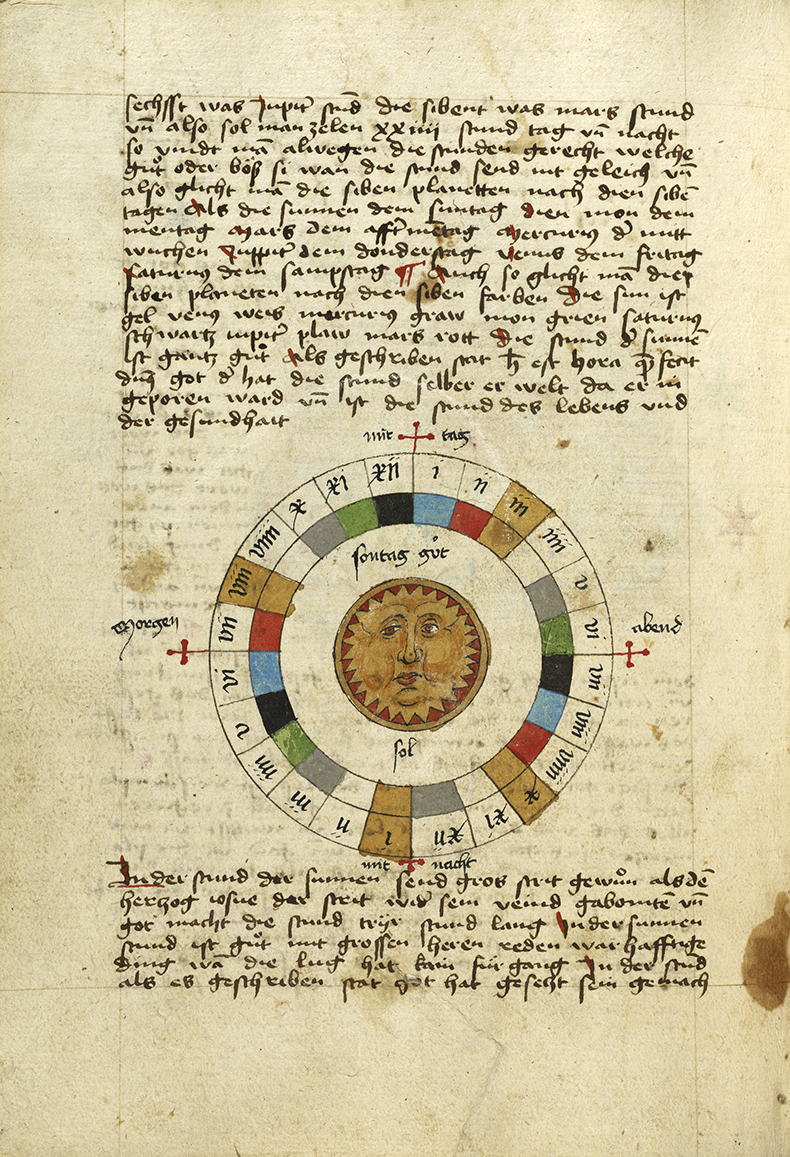 sechsst was Jupit̄ stūd die sibent was mars stund
vn̄ also sol man zelen xxiiii stund tag vn̄ nacht
so vindt mā alwegen die stunden gerecht welche
guͦt oder böß si wan die stund send nit geleich vn̄
also glicht mā die siben planetten nach dien sibē
tagen Als die sunnen dem suntag dien mon dem
mentag Mars dem afftr̄mētag Mercurius d̄ mitt
wuchen Juppit̄ dem donderstag Venus dem fritag
Saturnus dem sampstag ¶ Auch so glicht mā die
siben planeten nach dien siben farben Die sun ist
gel venus weis mercurius graw mon grien saturnus
schwartz iupit̄ plaw mars rott die stund d̄ sunnē
ist gantz guͦt Als geschriben stat h̄ est hora q̄ fecit
dn̄s got d̄ hat die stund selber er welt da er in
geporen ward vn̄ ist die stund des lebens vnd
der gesundhait
mit tag
xii i ii iii iiii v vi vii viii viiii x xi xii i ii iii iiii v vi vii viii viiii x xi
sontag guͦt
Morgen
abend
sol
mit nacht
In der stund der sunnen send gros strit gewuͦn als dē
hertzog iosue der streit wid̄ sein veind gabonite vn̄
got macht die stund tryr stund lang In der sunnen
stund ist guͦt mit grossen heren reden warhafftige
ding wā die lug hat kain für gang In der stūd
als es geschriben stat got hat gesetzt sein gemach